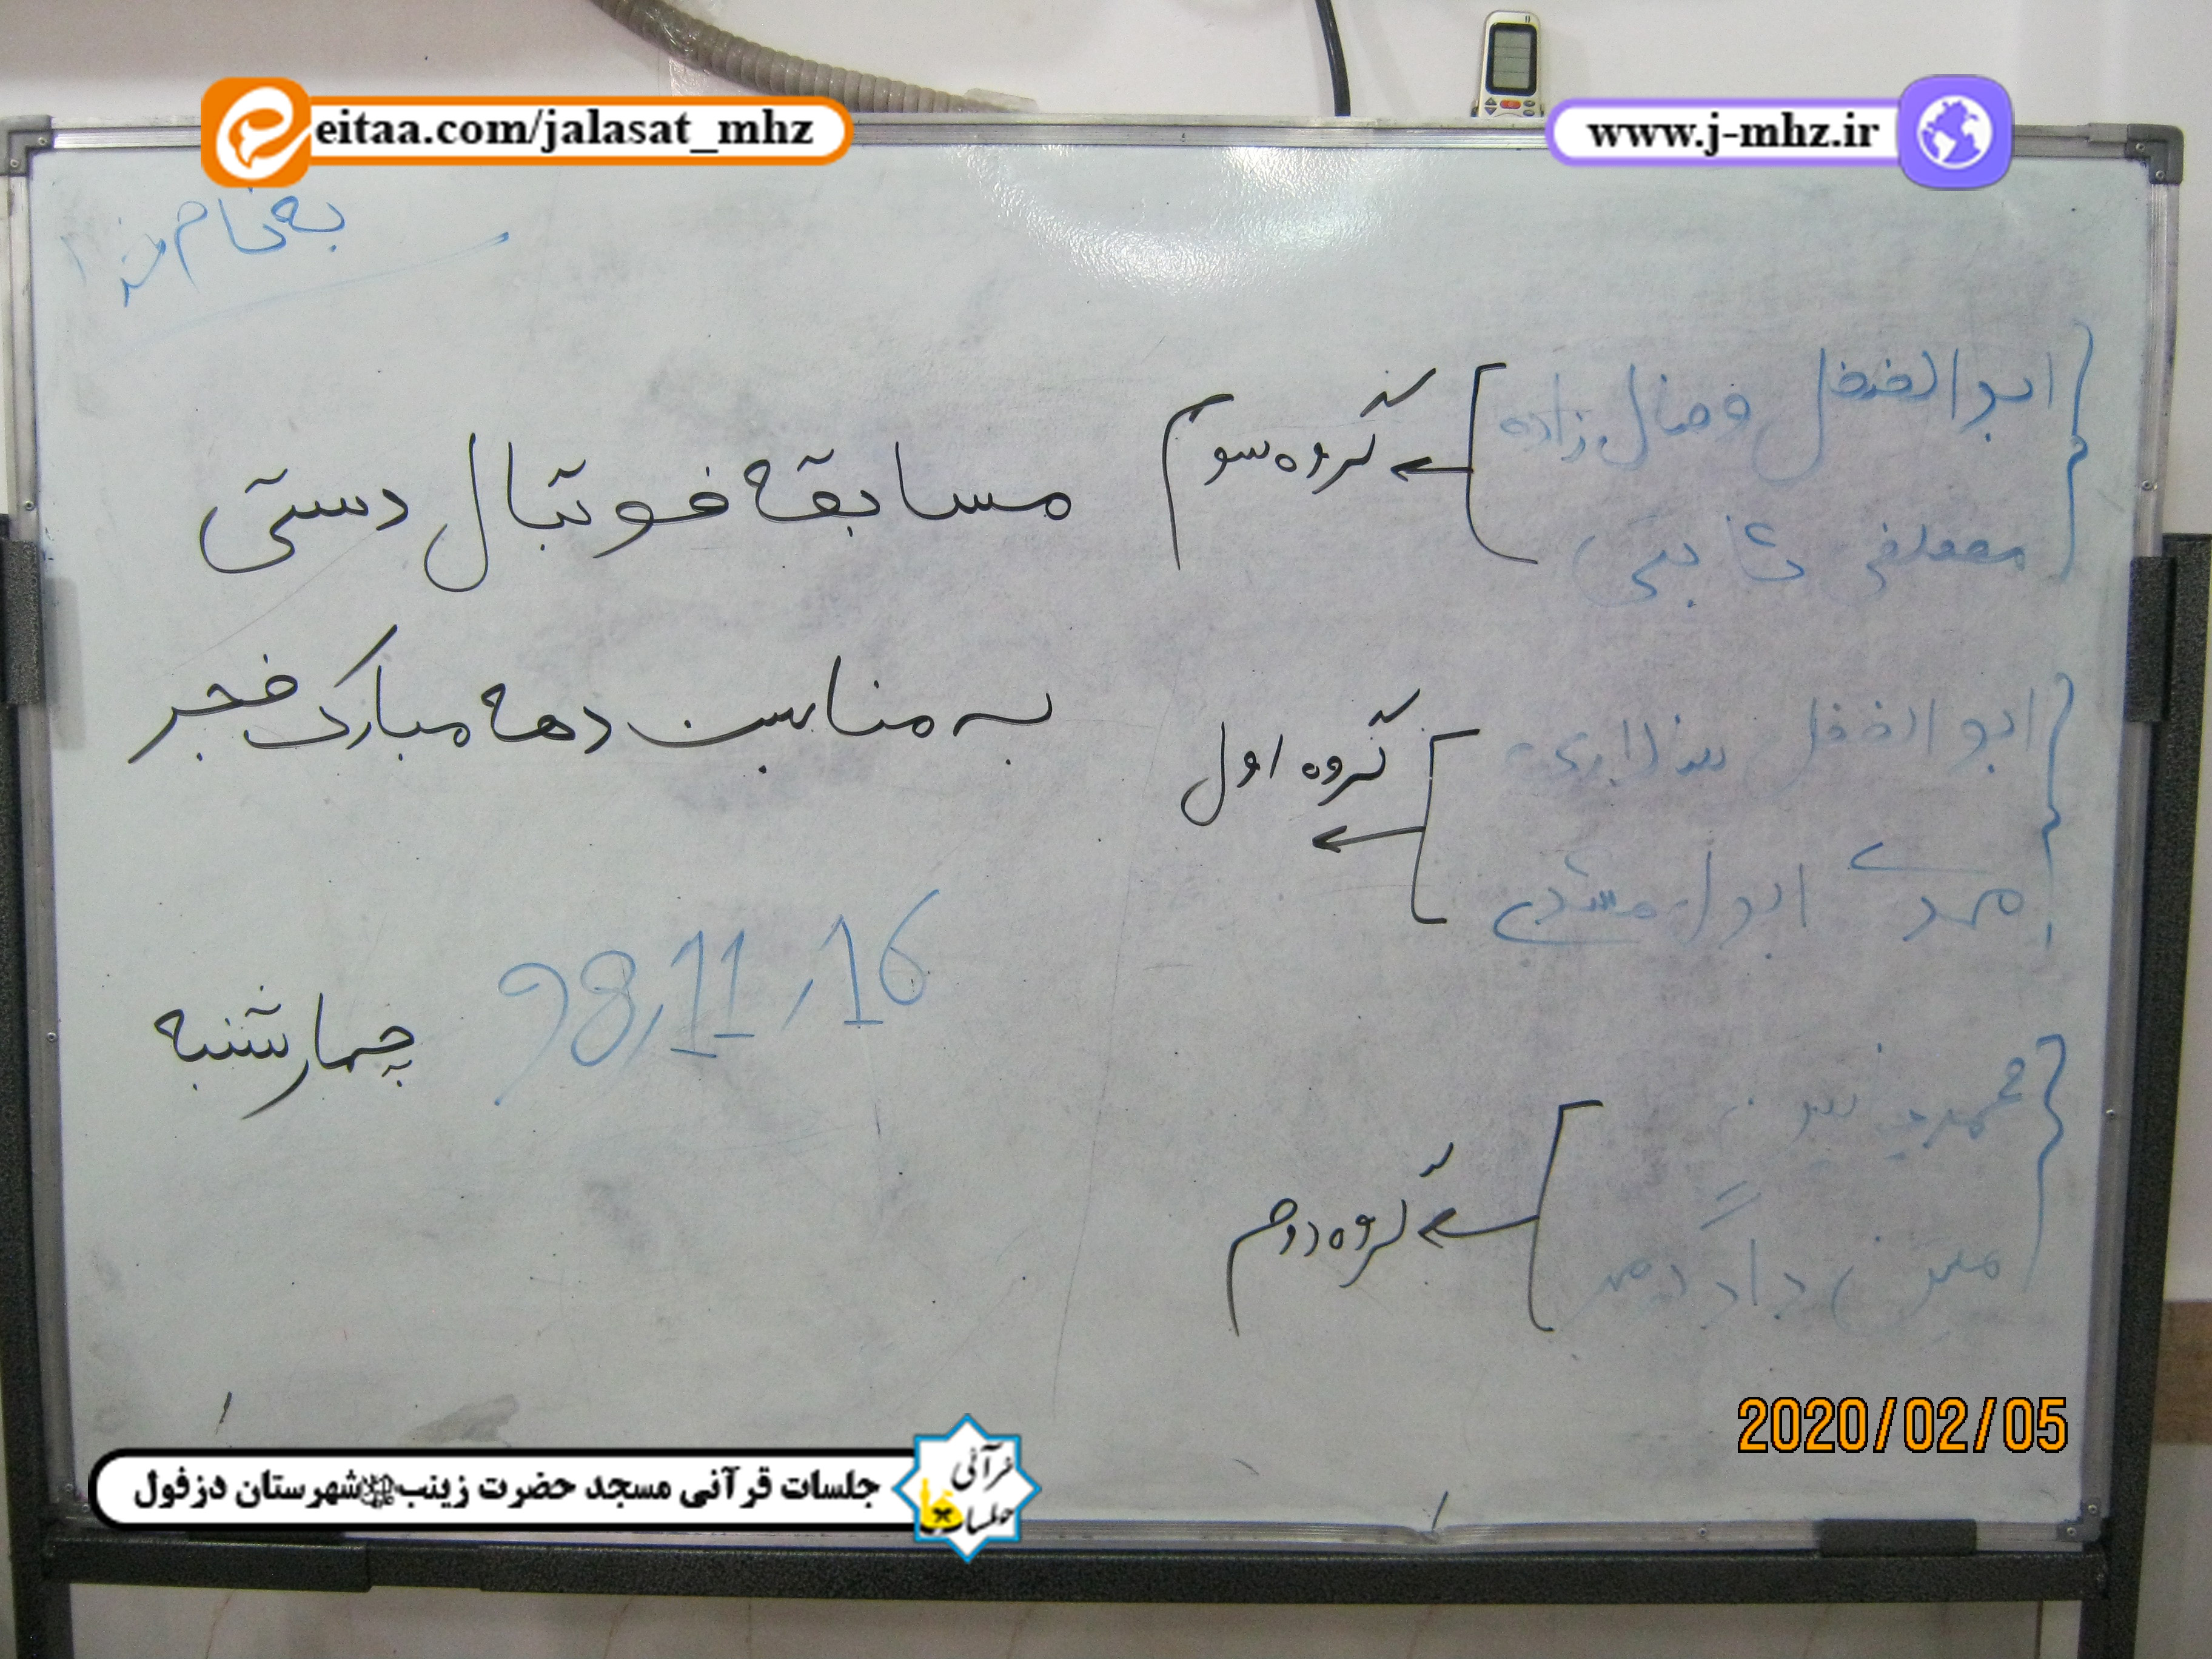 eitaa.com/jalasat_mhz
www.j-mhz.ir
به نام خدا
ابوالفضل وصال زاده
مصطفی ثابتی
گروه سوم
ابوالفضل
احمد ابوال
گروه اول
مبین
گروه دوم
مسابقه فوتبال دستی
به مناسبت دهه مبارک فجر
98,11,16 چهارشنبه
2020/02/05
جلسات قرآنی مسجد حضرت زینب شهرستان دزفول
قرآنی
جلسات